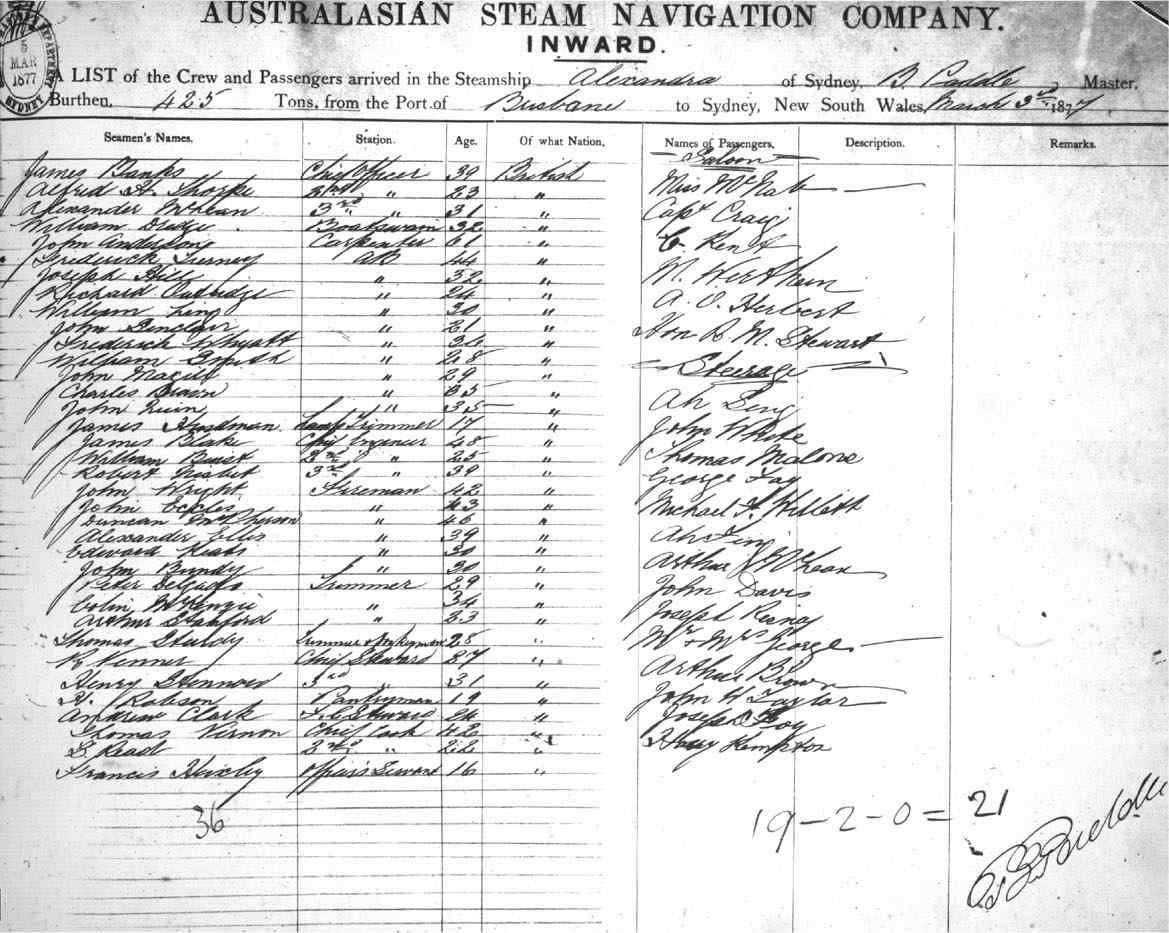 AUSTRALASIAN STEAM NAVIGATION COMPANY.
INWARD.
5
MAR
1877
SYDNEY
A LIST of the Crew and Passengers arrived in the Steamship Alexandra of Sydney, B. Paddle Master,
Burthen, 425 Tons, from the Port of Brisbane to Sydney, New South Wales, March 3rd 1877
Seamen's Names. Station. Age. Of what Nation, Names of Passengers, Description. Remarks.
Saloon
James Banks Chief Officer 39 British Miss McNab
Alfred H. Thorpe 2nd " 23 "
Alexander McLean 3rd " 31 " Capt Craig
William Boatswain 32 "
John Anderson Carpenter 61 " C. Kent
Frederick Turney AB 44 "
Joseph Hill " 32 " M. Wertheim
Richard " 24 "
William " 30 " A. O. Herbert
John Sinclair " 21 "
Frederick Whyatt " " Hon B. M. Stewart
William Smith " 28 "
John " 29 " Steerage
Charles Brown " "
John Quin " 35 " Ah
James Trimmer 17 " John White
James Blake Chief Engineer 48 "
William 2nd " 25 " Thomas Malone
Robert Nesbit 3rd " 39 " George Fay
John Wright Fireman 42 "
John Eccles " 43 " Michael
Duncan McPherson " 46 "
Alexander Ellis " 39 " Ah
Edward Keats " 30 "
John Bundy " 30 " Arthur McLean
Peter Delgado Trimmer 29 " John Davis
Colin McKenzie " 34 "
Arthur Stanford " 23 " Joseph
Thomas Sturdy Trimmer & 28 " Mr & Mrs George
R. Venner Chief Steward "
Henry 3rd " 31 " Arthur Brown
H. Robson Pantryman 19 " John H. Taylor
Andrew Clark Steward 24 " Joseph
Thomas Vernon Chief Cook 42 "
2nd " 22 " Kempton
Francis Huxley Steward 16 "
36
19 - 2 - 0 = 21
B Paddle